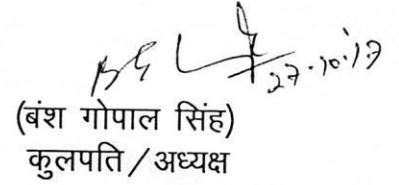 27.10.17
(बंश गोपाल सिंह)
कुलपति / अध्यक्ष